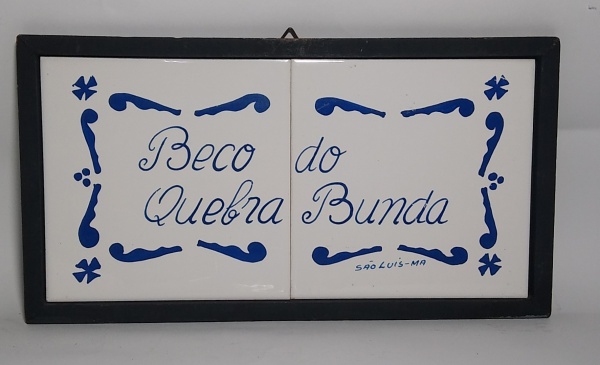 Beco do
Quebra Bunda
SÃO LUÍS-MA